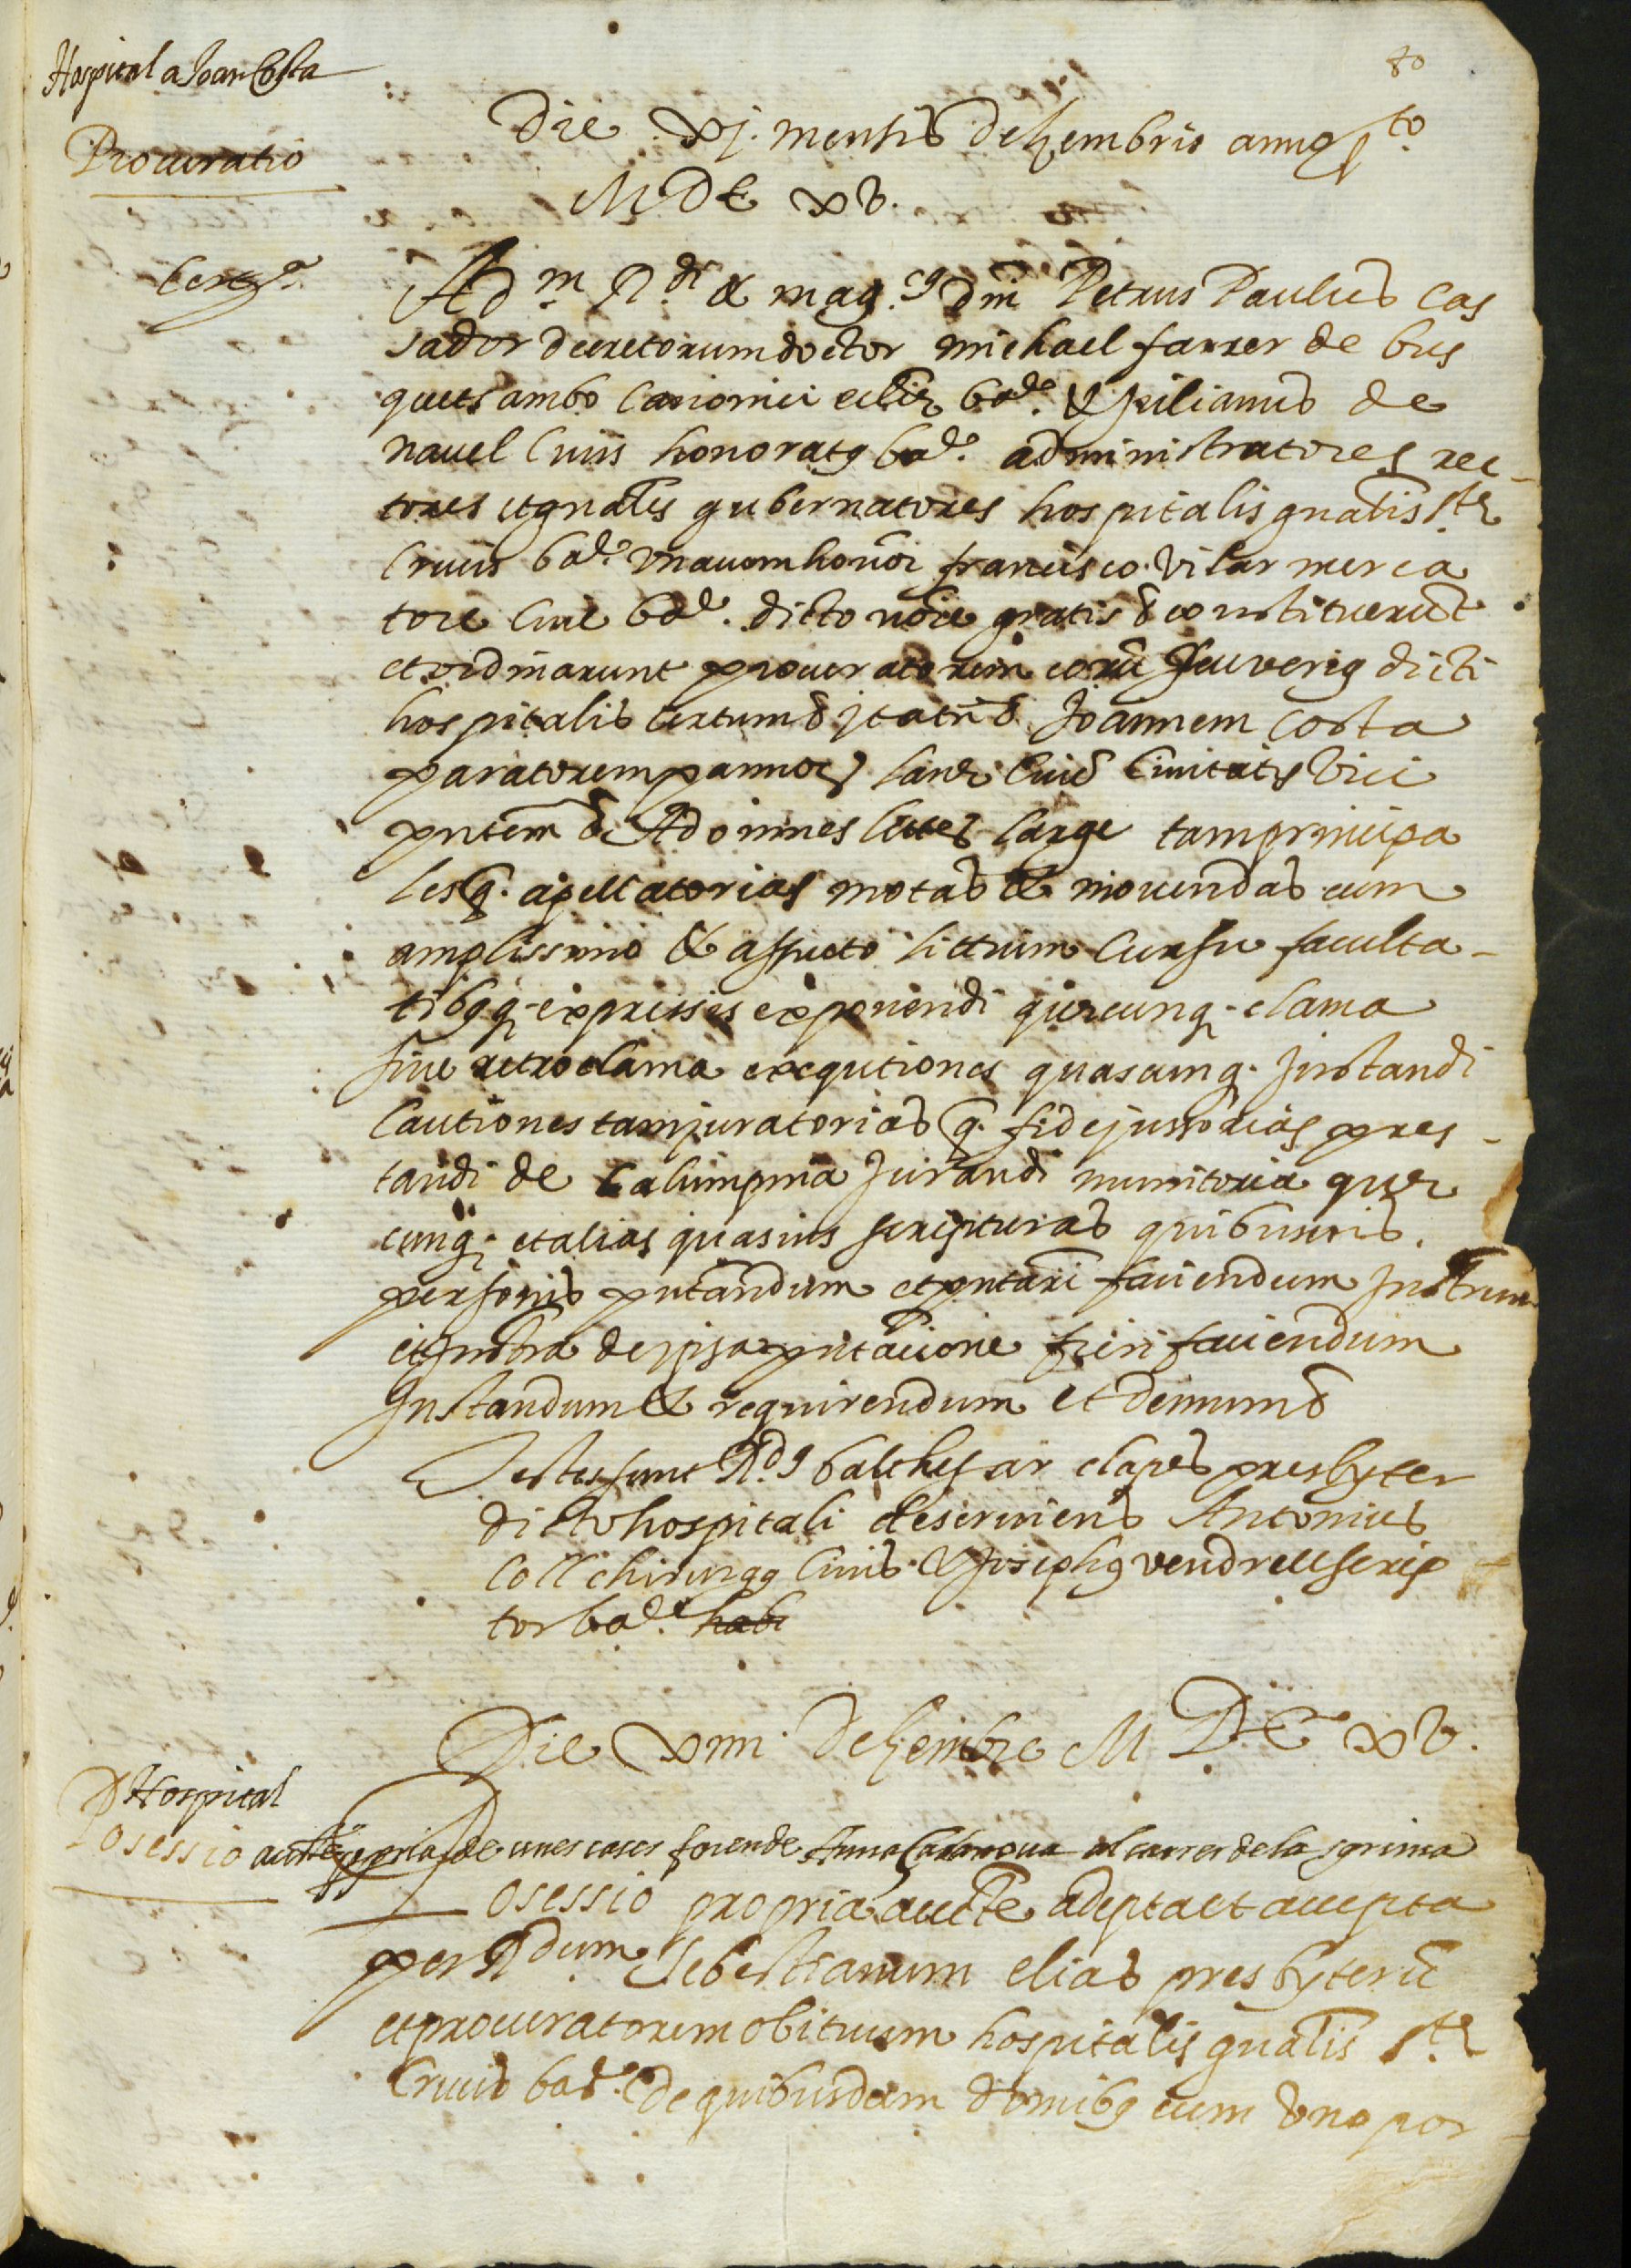 80
Hospital a Joan Costa
Procuratio
Die xj. mensis dezembris anno s.to
MDC xv.
Adm. R.di & mag.ci dni Petrus Paulus Cas
sador decretorum doctor michael farrer de bus
quets ambo Canonici eclie bad.e & Julianus de
navel Civis honorats bad.e administratores rec-
tores et gnales gubernatores hospitalis gnalis Ste
Crucis bad.e francisco vilar merca
tore Cive bad.e dicto noie gratis &c constituerunt
et ordinarunt procuratorem eorum seu verius dicti
hospitalis certum &c ita tn &c Joannem Costa
paratorem pannor lane Civem Civitatis Vici
pntem &c Ad omnes lites large tam principa
les q. apellatorias motas & movendas cum
amplissimo & assueto littium Cursu faculta-
tibus q. expressis exponendi quecunq. clama
sive retroclama exequtiones quascunq. Instandi
Cautiones tam juratorias q. fidejussorias pres-
tandi de calumpnia Jurandi munitoria que
cunq. et alias quasvis scripturas quibusvis.
personis pntandum et pntari faciendum Instrum
et Instra de ipsa pntacione fieri faciendum
Instandum & requirendum et demum &
Testes sunt R.ds balthesar clapes presbyter
dicto hospitali deserviens Antonius
Coll chirurgus Civis & Josephus vendrell scrip
tor bad.e habi
Die xviiii dezembre MDC xv.
Hospital
Posessio auctte ppria de unes cases foren de Anna Casanova al carrer de la sgrima
Posessio propria auctte adepta et accepta
per Rdum Sebestianum elias presbyterum
et procuratorem obituum hospitalis gnalis Ste
Crucis bad.e de quibusdam domibus cum uno por